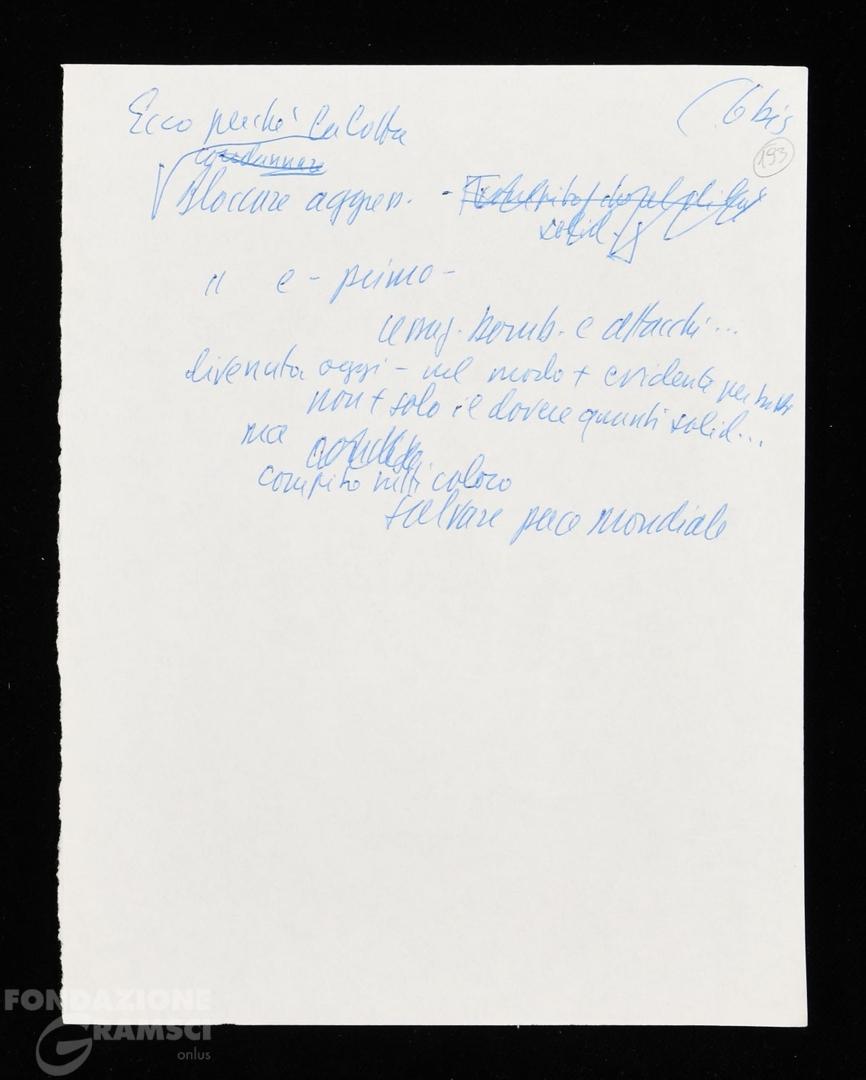 Ecco perché la lotta
6 bis
193
condannare
Bloccare aggres. -
solid.
" e - primo -
cessaz. bomb. e attacchi...
divenuta oggi - nel modo + evidente per tutti
non + solo il dovere quanti solid...
ma
compito tutti coloro
salvare pace mondiale
FONDAZIONE
GRAMSCI
onlus